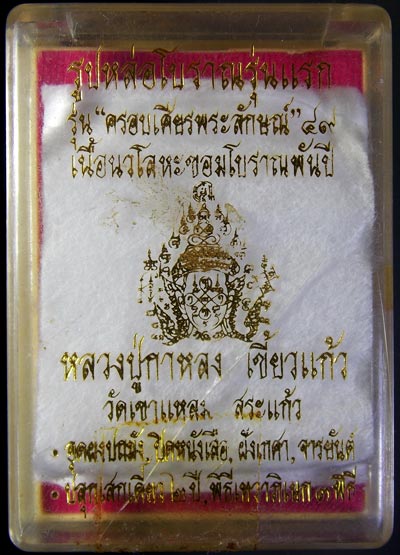 รูปหล่อโบราณรุ่นแรก
รุ่น “ครอบเศียรพระลักษณ์” ๔๙
เนื้อนวโลหะขอมโบราณพันปี
หลวงปู่กาหลง เขี้ยวแก้ว
วัดเขาแหลม สระแก้ว
• อุดผงปถมัง, ปิดหนังเสือ, ฝังเกศา, จารยันต์
• ปลุกเสกเดี่ยว ๒ ปี, พิธีเทวาภิเษก ๗ พิธี